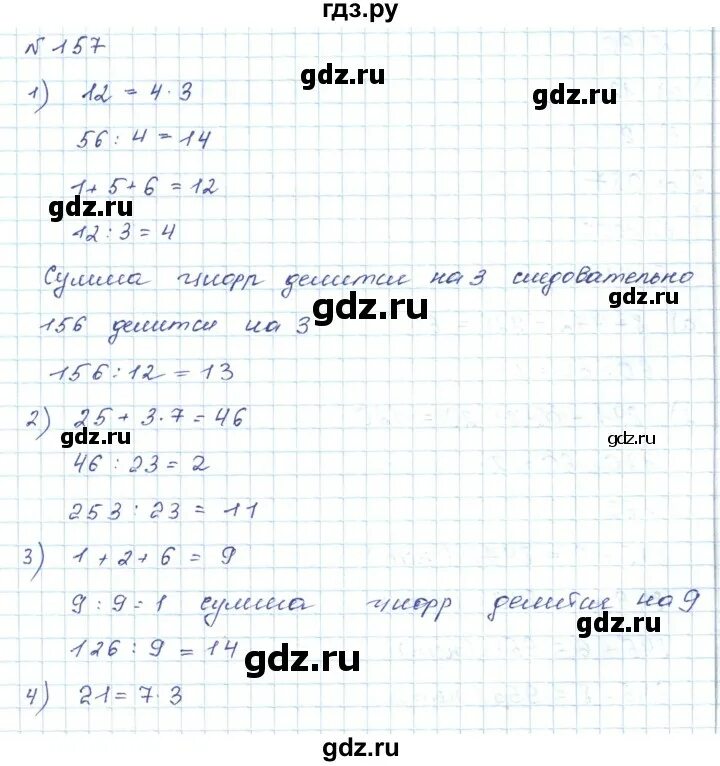 гдз.ру
№ 157
gdz.ru
1) 12 = 4 · 3
gdz.ru
56 : 4 = 14
1 + 5 + 6 = 12
gdz.ru
12 : 3 = 4
Сумма цифр делится на 3 следовательно
gdz.ru
gdz.ru
156 делится на 3
156 : 12 = 13
2) 25 + 3 · 7 = 46
gdz.ru
gdz.ru
46 : 23 = 2
253 : 23 = 11
3) 1 + 2 + 6 = 9
9 : 9 = 1 сумма цифр делится на 9
gdz.ru
126 : 9 = 14
gdz.ru
4) 21 = 7 · 3
gdz.ru